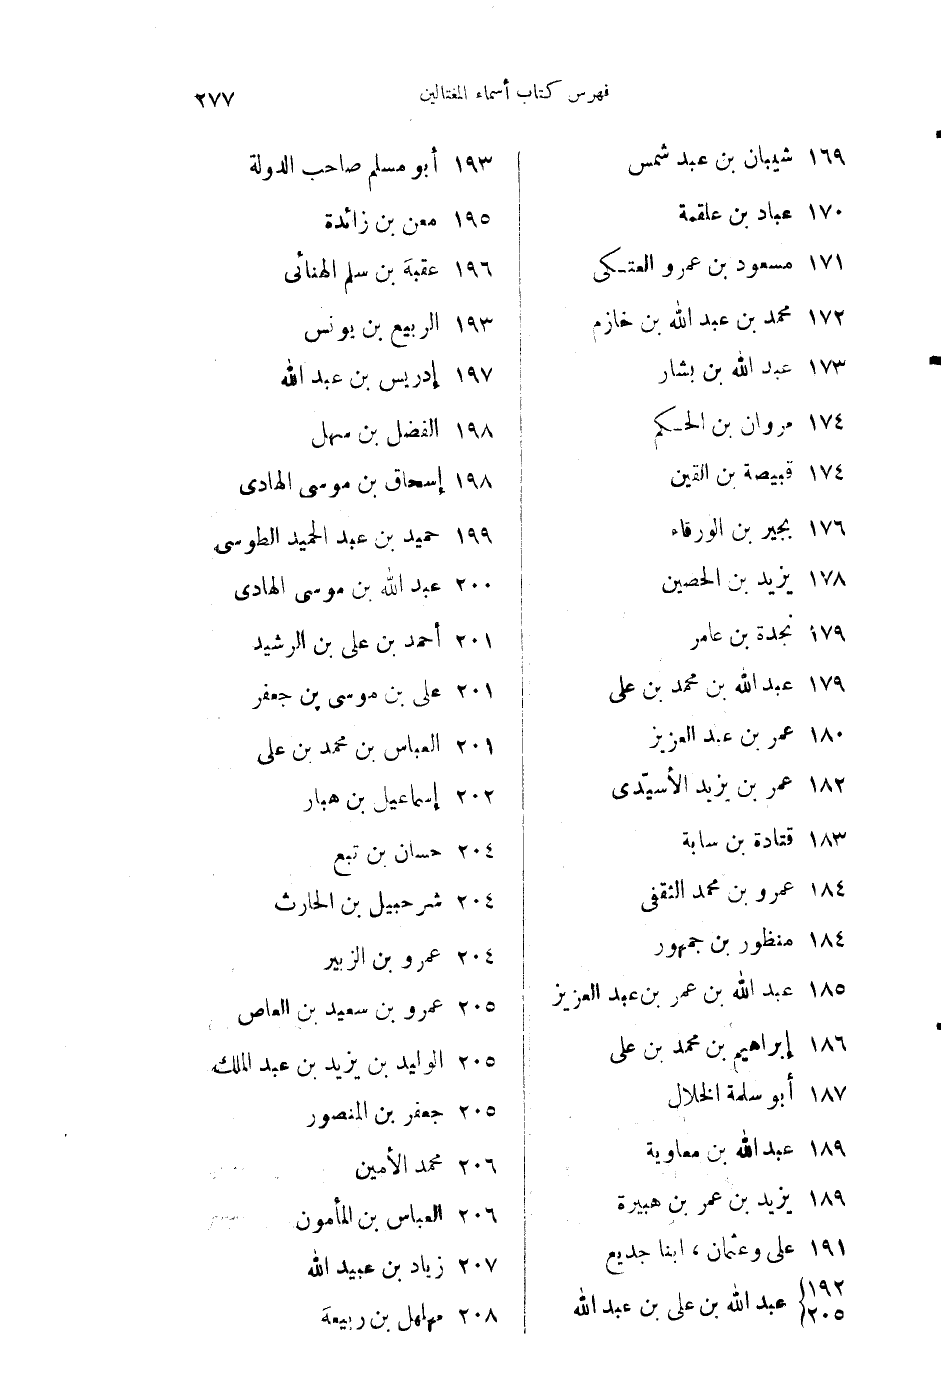 فهرس كتاب أسماء المغتالين ٢٧٧
١٦٩ شيبان بن عبد شمس
١٧٠ عباد بن علقمة
١٧١ مسعود بن عمرو العتكى
١٧٢ محمد بن عبد الله بن خازم
١٧٣ عبد الله بن بشار
١٧٤ مروان بن الحكم
١٧٤ قبيصة بن القين
١٧٦ بجير بن الورقاء
١٧٨ يزيد بن الحصين
١٧٩ نجدة بن عامر
١٧٩ عبد الله بن محمد بن على
١٨٠ عمر بن عبد العزيز
١٨٢ عمر بن يزيد الأسيّدى
١٨٣ قتادة بن سابة
١٨٤ عمرو بن محمد الثقفى
١٨٤ منظور بن جمهور
١٨٥ عبد الله بن عمر بن عبد العزيز
١٨٦ إبراهيم بن محمد بن على
١٨٧ أبو سلمة الخلال
١٨٩ عبد الله بن معاوية
١٨٩ يزيد بن عمر بن هبيرة
١٩١ على وعثمان ، ابنا جديع
١٩٢
٢٠٥ } عبد الله بن على بن عبد الله
١٩٣ أبو مسلم صاحب الدولة
١٩٥ معن بن زائدة
١٩٦ عقبة بن سلم الهنائى
١٩٣ الربيع بن يونس
١٩٧ إدريس بن عبد الله
١٩٨ الفضل بن سهل
١٩٨ إسحاق بن موسى الهادى
١٩٩ حميد بن عبد الحميد الطوسى
٢٠٠ عبد الله بن موسى الهادى
٢٠١ أحمد بن على بن الرشيد
٢٠١ على بن موسى بن جعفر
٢٠١ العباس بن محمد بن على
٢٠٢ إسماعيل بن هبار
٢٠٤ حسان بن تبع
٢٠٤ شرحبيل بن الحارث
٢٠٤ عمرو بن الزبير
٢٠٥ عمرو بن سعيد بن العاص
٢٠٥ الوليد بن يزيد بن عبد الملك
٢٠٥ جعفر بن المنصور
٢٠٦ محمد الأمين
٢٠٦ العباس بن المأمون
٢٠٧ زياد بن عبيد الله
٢٠٨ مهلهل بن ربيعة